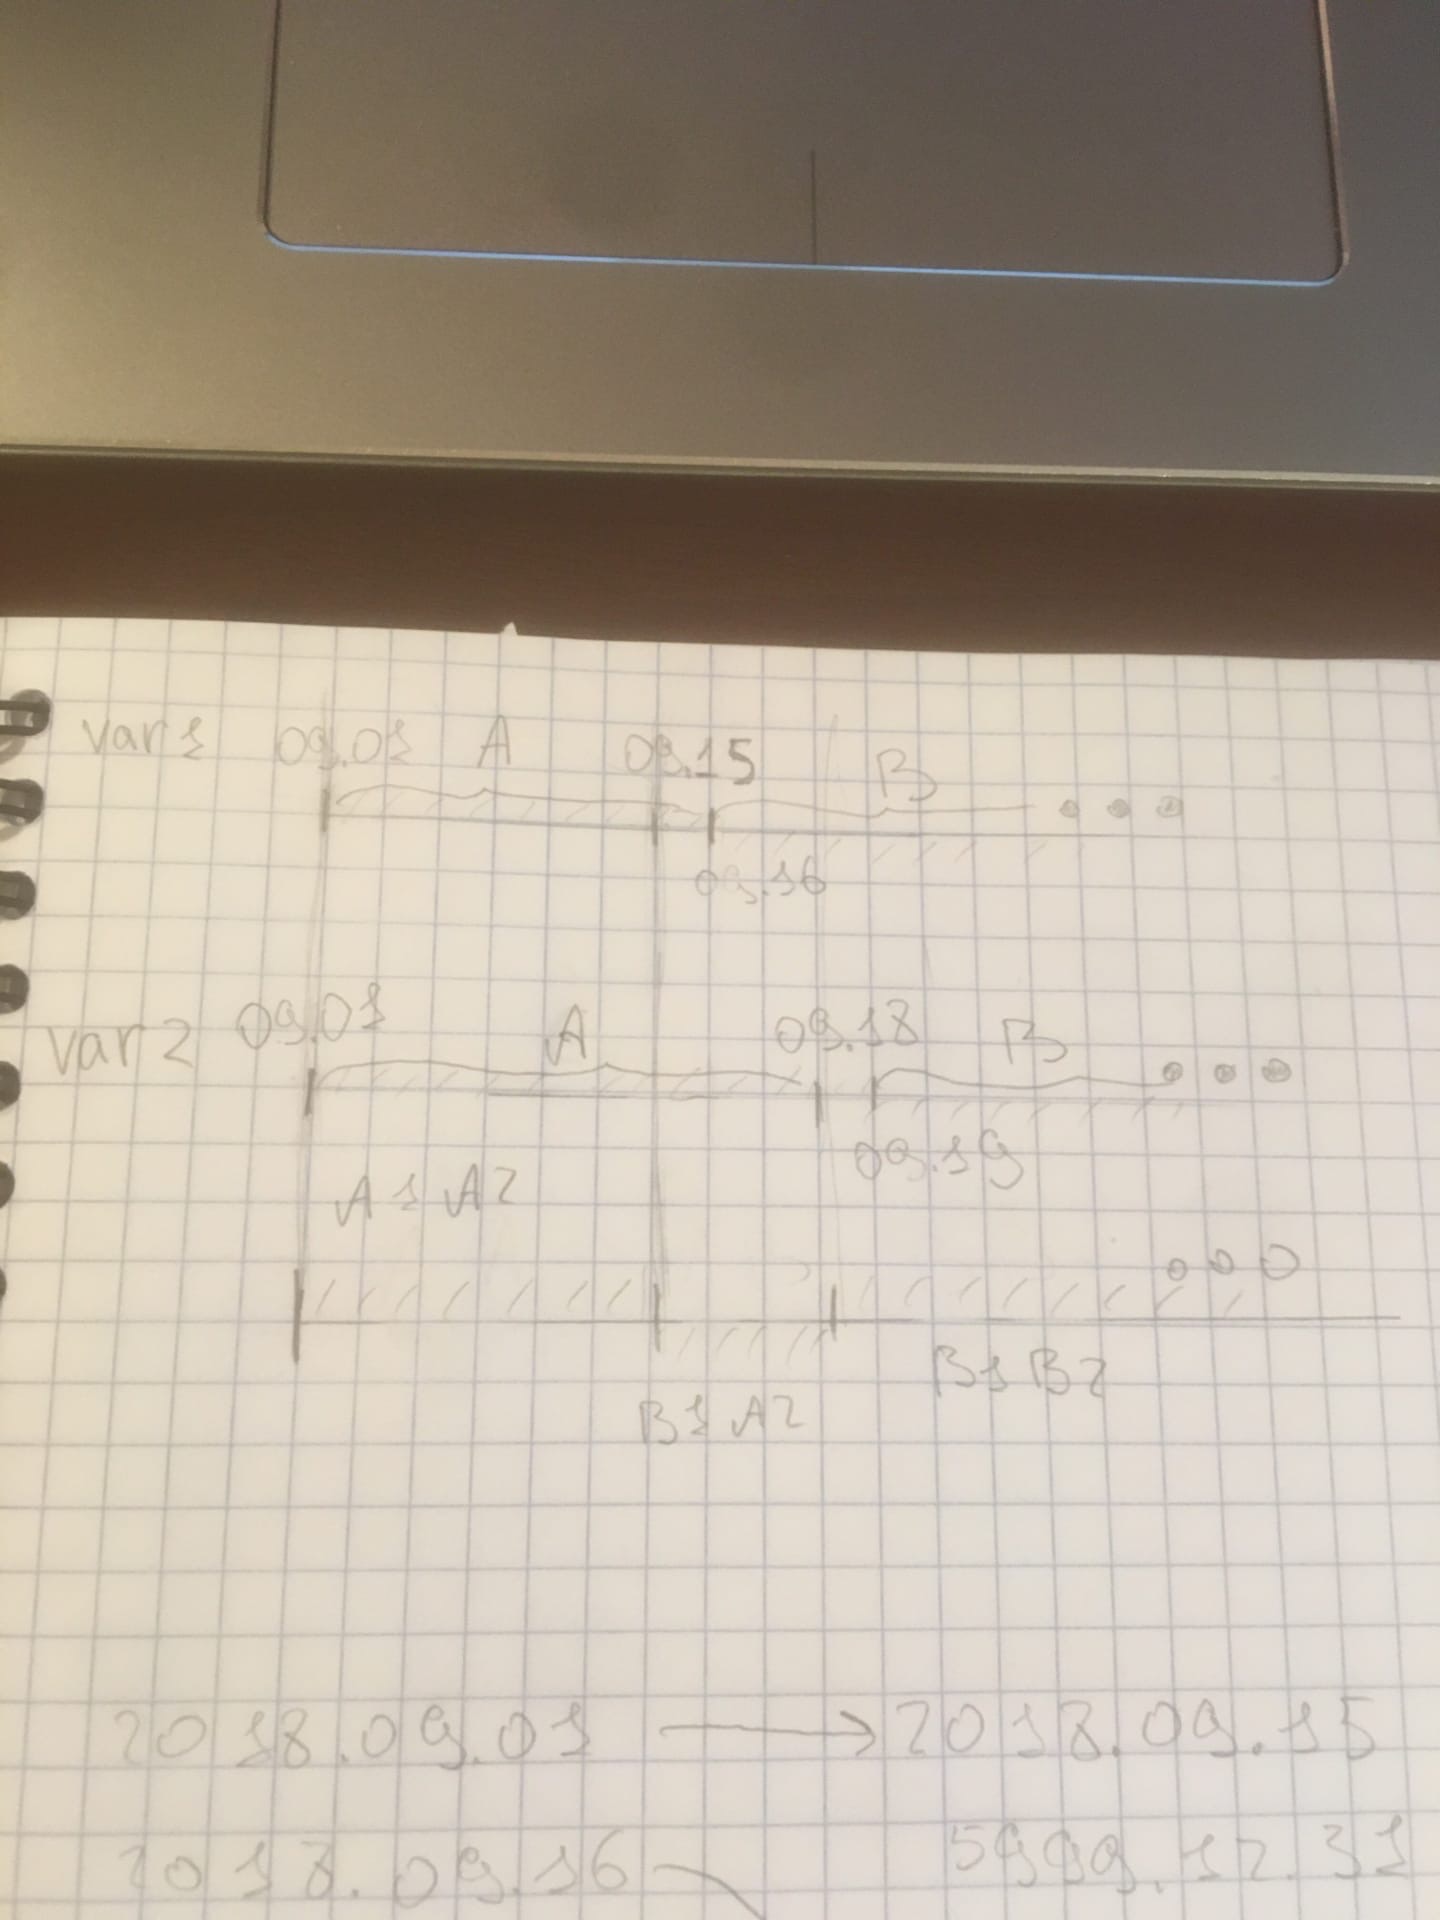 var 1 09.01 A 09.15 B
09.16
var 2 09.01 A 09.18 B
09.19
A1 A2
B1 B2
B1 A2
2018.09.01 → 2018.09.15
2018.09.16 5999.12.31